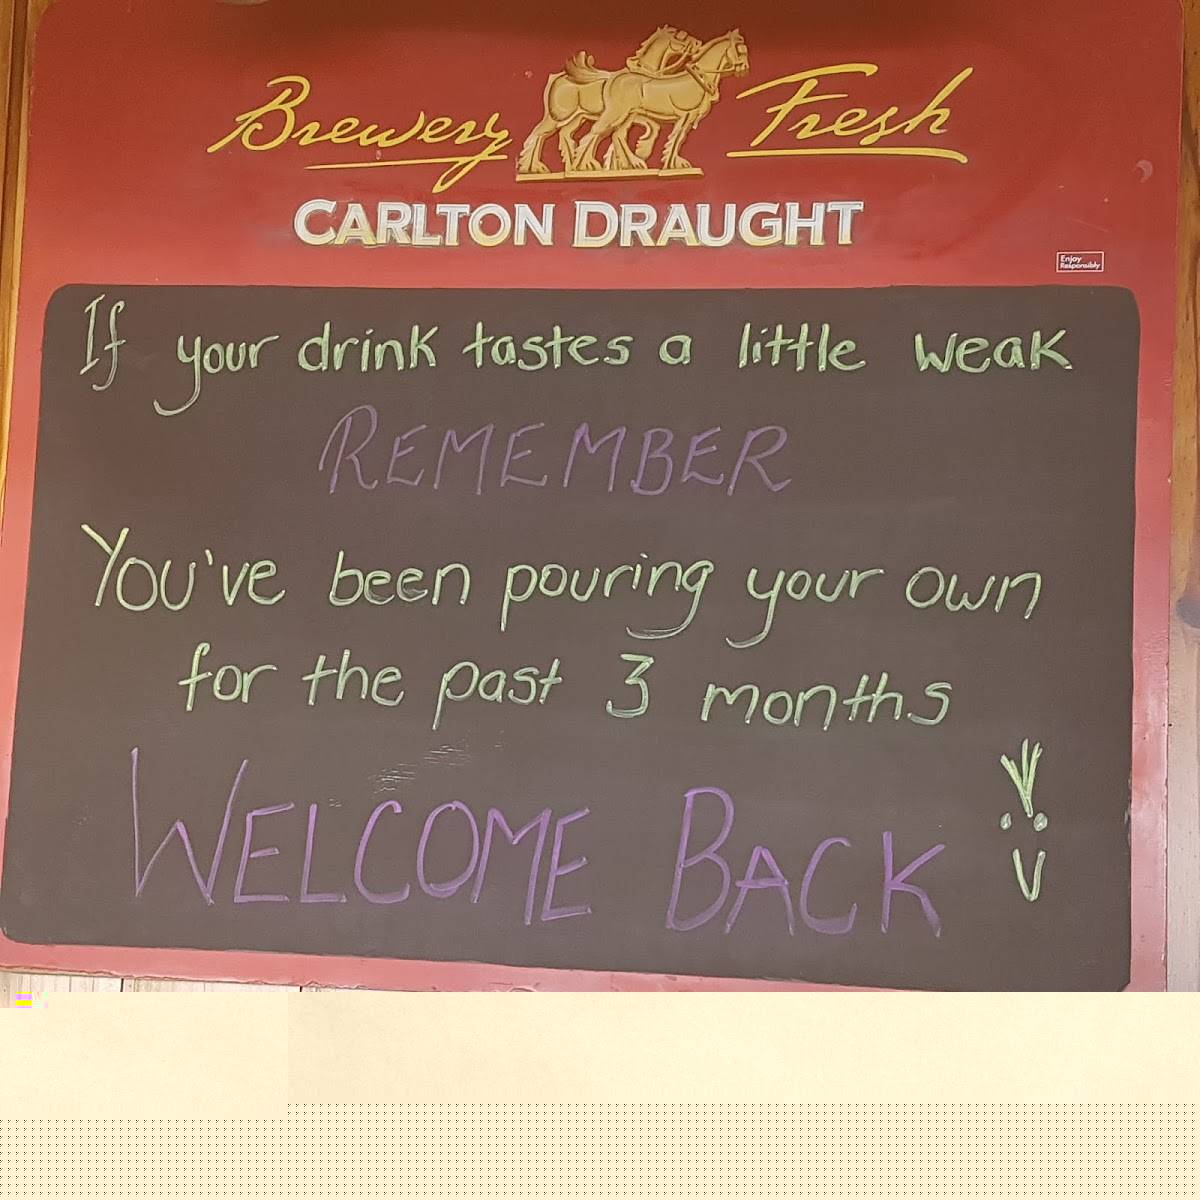 Brewery Fresh
CARLTON DRAUGHT
Enjoy
Responsibly
If your drink tastes a little weak
REMEMBER
You've been pouring your own
for the past 3 months
WELCOME BACK